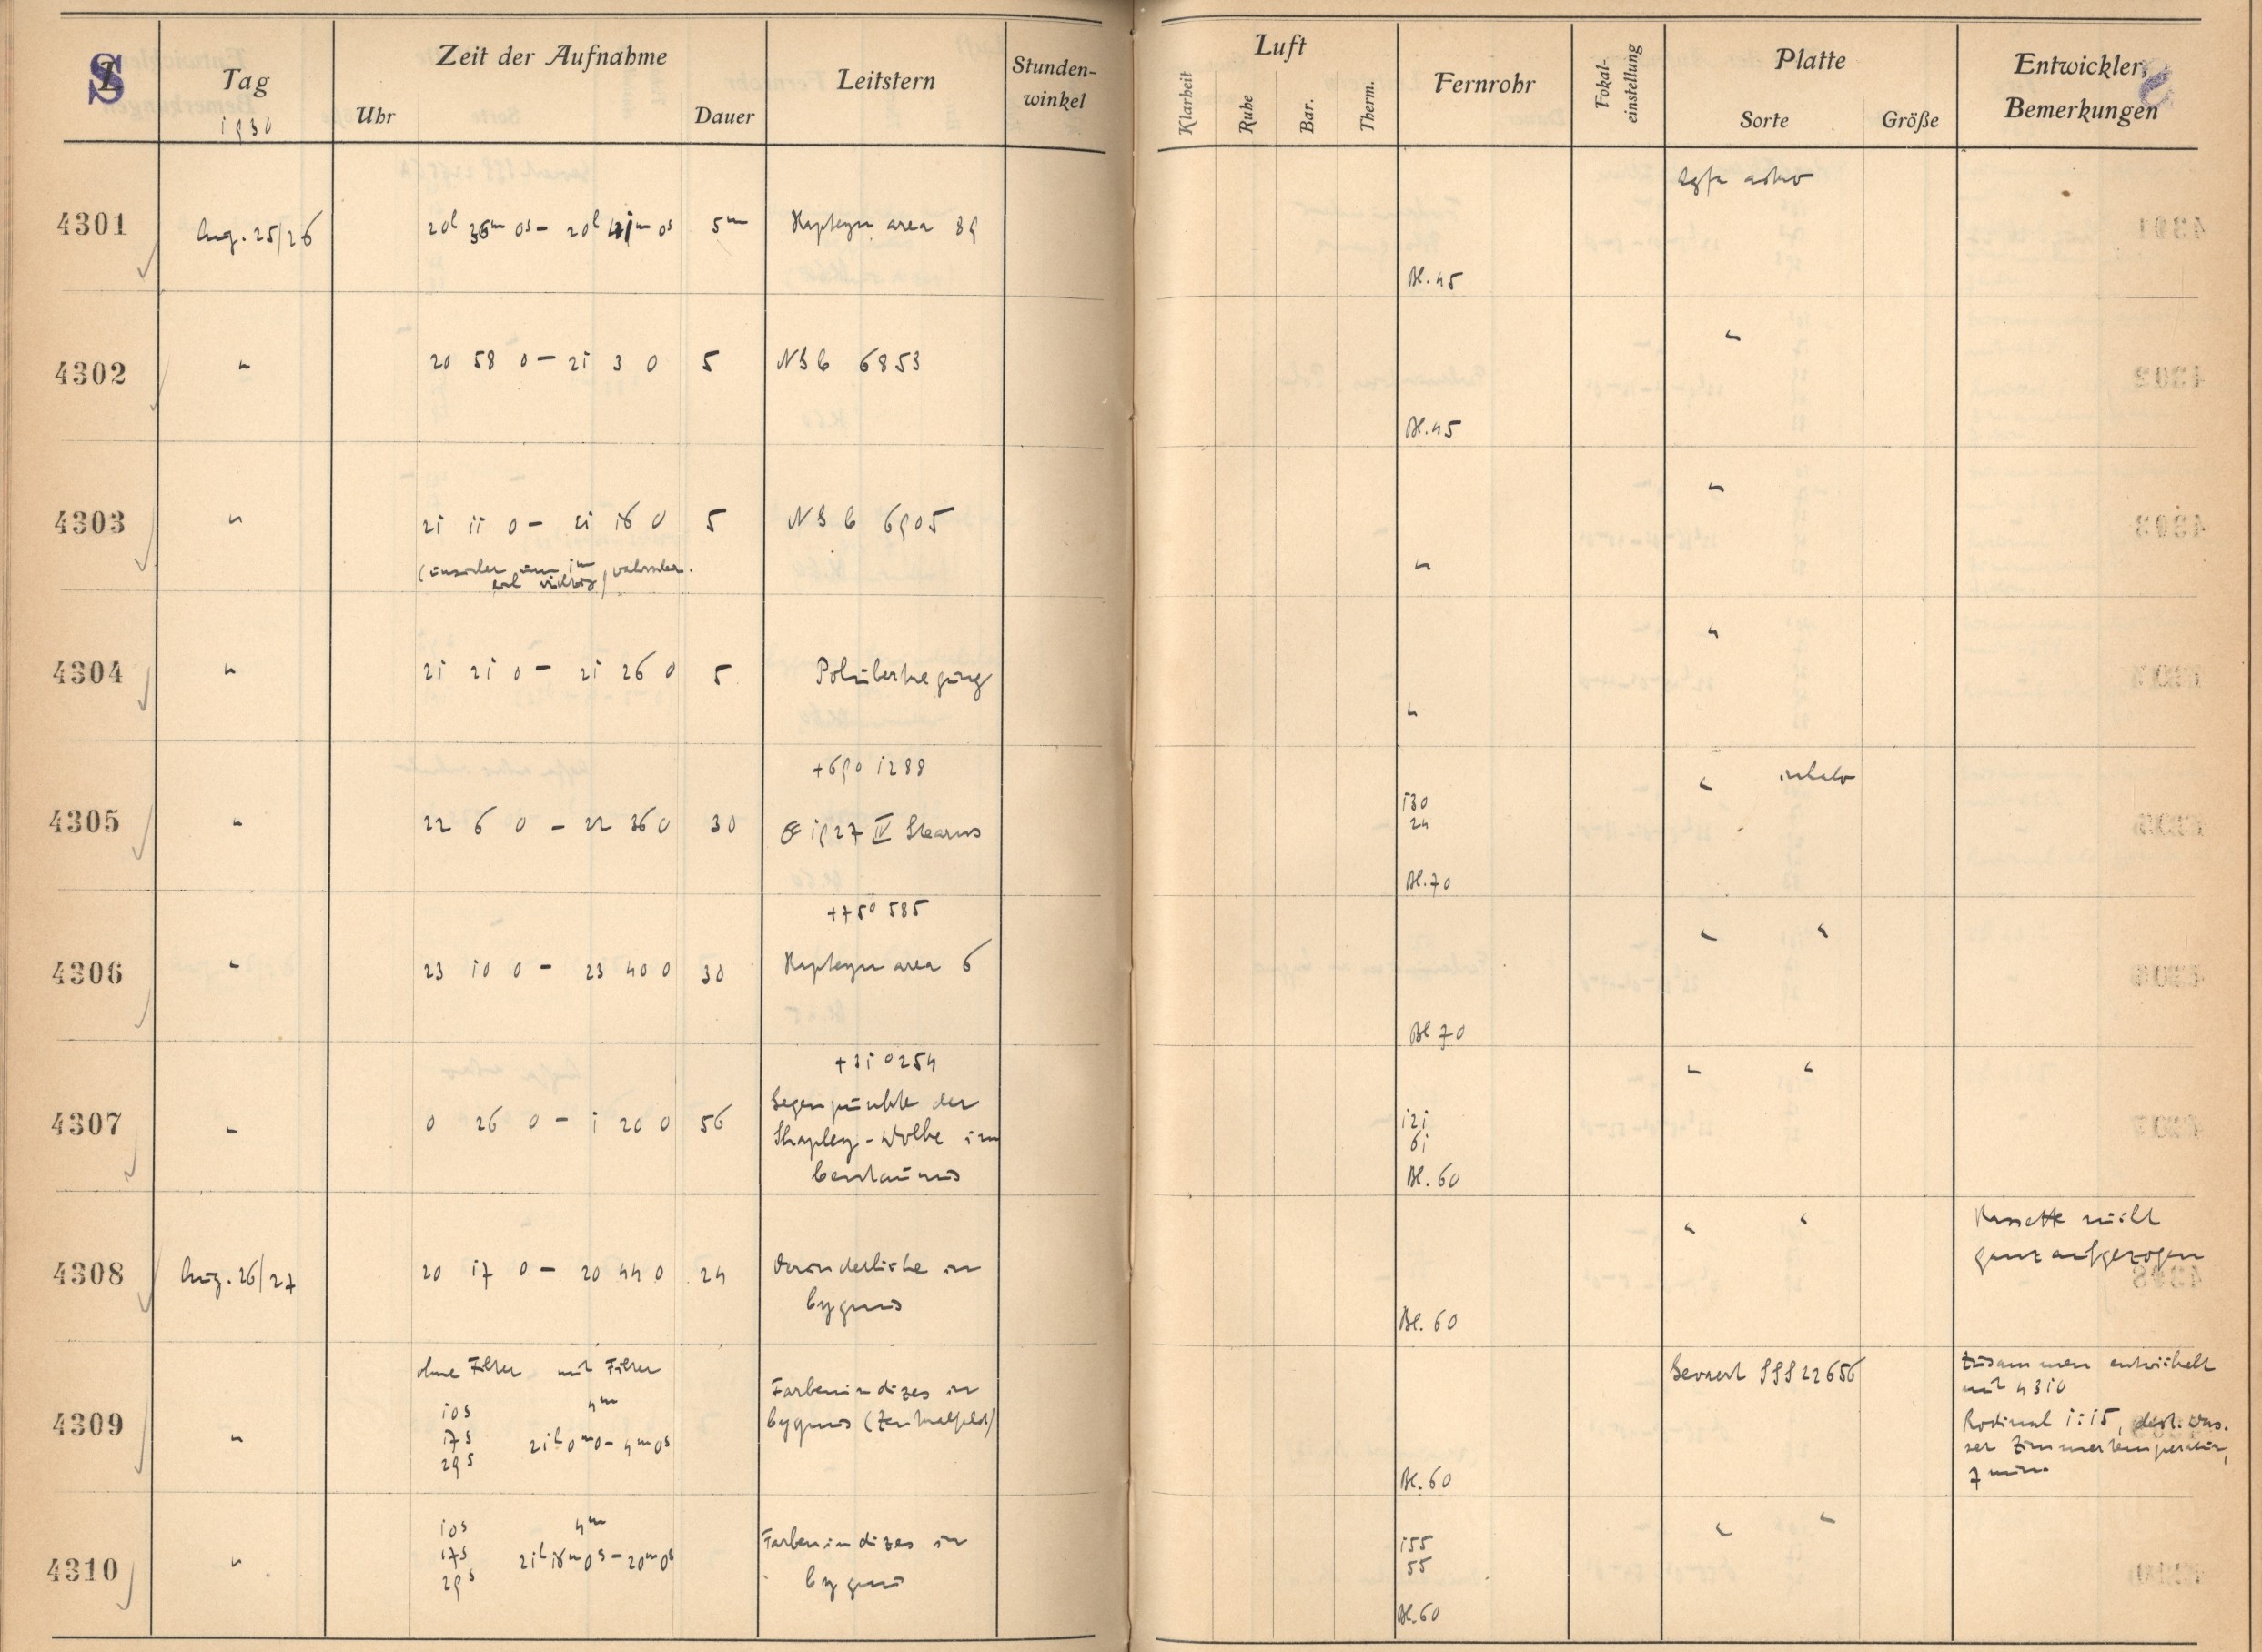 S
Tag
1930
Zeit der Aufnahme
Uhr
Dauer
Leitstern
Stunden-
winkel
Luft
Klarheit
Ruhe
Bar.
Therm.
Fernrohr
Fokal-
einstellung
Platte
Sorte
Größe
Entwickler,
Bemerkungen
4301 Aug. 25/26 20h 36m 0s – 20h 41m 0s 5m Kapteyn area 89 Agfa astro
Bl. 45
4302 " 20 58 0 – 21 3 0 5 NGC 6853 "
Bl. 45
4303 " 21 11 0 – 21 16 0 5 NGC 6905 "
"
4304 " 21 21 0 – 21 26 0 5 Polübertragung "
"
+69° 1288
4305 " 22 6 0 – 22 36 0 30 1927 IV Stearns 130
24
Bl. 70
" isolar
+75° 585
4306 " 23 10 0 – 23 40 0 30 Kapteyn area 6 " "
Bl 70
+31° 254
4307 " 0 26 0 – 1 20 0 56 Gegenpunkte der
Shapley-Wolke im
Centaurus
121
61
Bl. 60
" "
4308 Aug. 26/27 20 17 0 – 20 44 0 24 Veränderliche in
Cygnus
Bl. 60
" "
Kassette nicht
ganz aufgezogen
4309 " ohne Filter mit Filter
10s 4m
17s 21h 0m 0 – 4m 0s
29s
Farbenindizes in
Cygnus (Zentralfeld)
Bl. 60
Gevaert SSS 22656
Zusammen entwickelt
mit 4310
Rodinal 1:15, dest. Was-
ser Zimmertemperatur,
7 min.
4310 " 10s 4m
17s 21h 16m 0s – 20m 0s
29s
Farbenindizes in
Cygnus
155
55
Bl. 60
" "